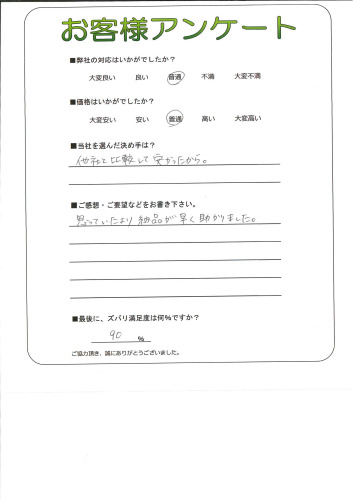 お客様アンケート
■弊社の対応はいかがでしたか？
大変良い 良い 普通 不満 大変不満
■価格はいかがでしたか？
大変安い 安い 普通 高い 大変高い
■当社を選んだ決め手は？
他社と比較して安かったから。
■ご感想・ご要望などをお書き下さい。
思っていたより納品が早く助かりました。
■最後に、ズバリ満足度は何％ですか？
90 ％
ご協力頂き、誠にありがとうございました。